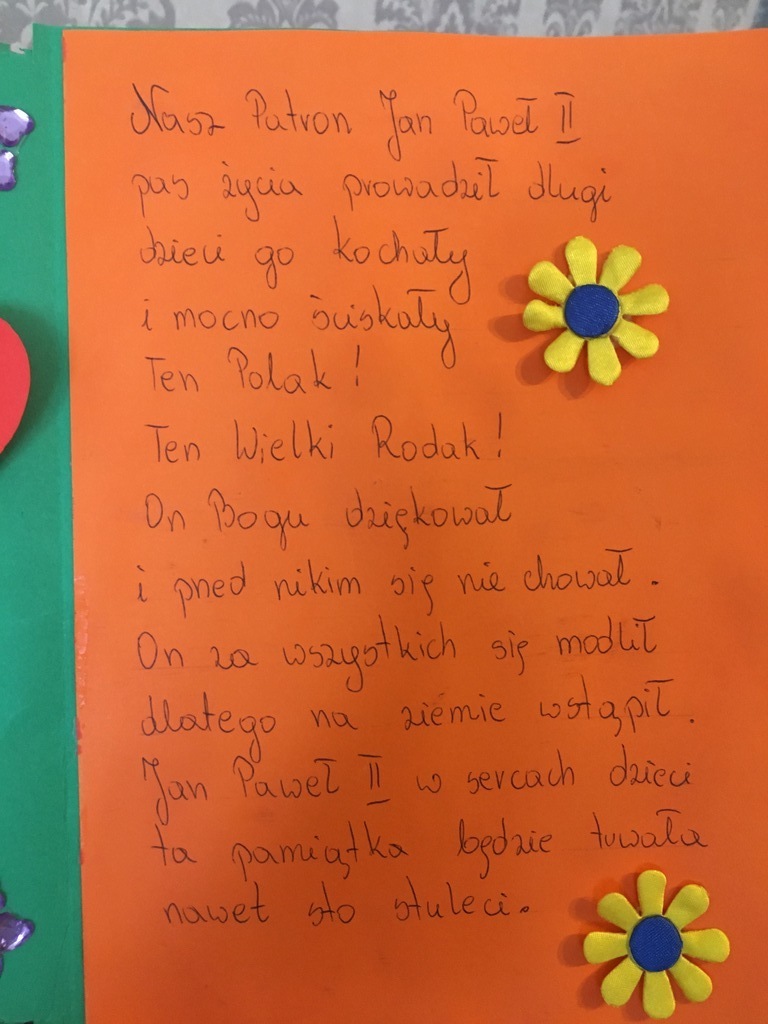 Nasz Patron Jan Paweł II
pas życia prowadził długi
dzieci go kochały
i mocno ściskały
Ten Polak!
Ten Wielki Rodak!
On Bogu dziękował
i przed nikim się nie chował.
On za wszystkich się modlił
dlatego na ziemie wstąpił.
Jan Paweł II w sercach dzieci
ta pamiątka będzie trwała
nawet sto stuleci.